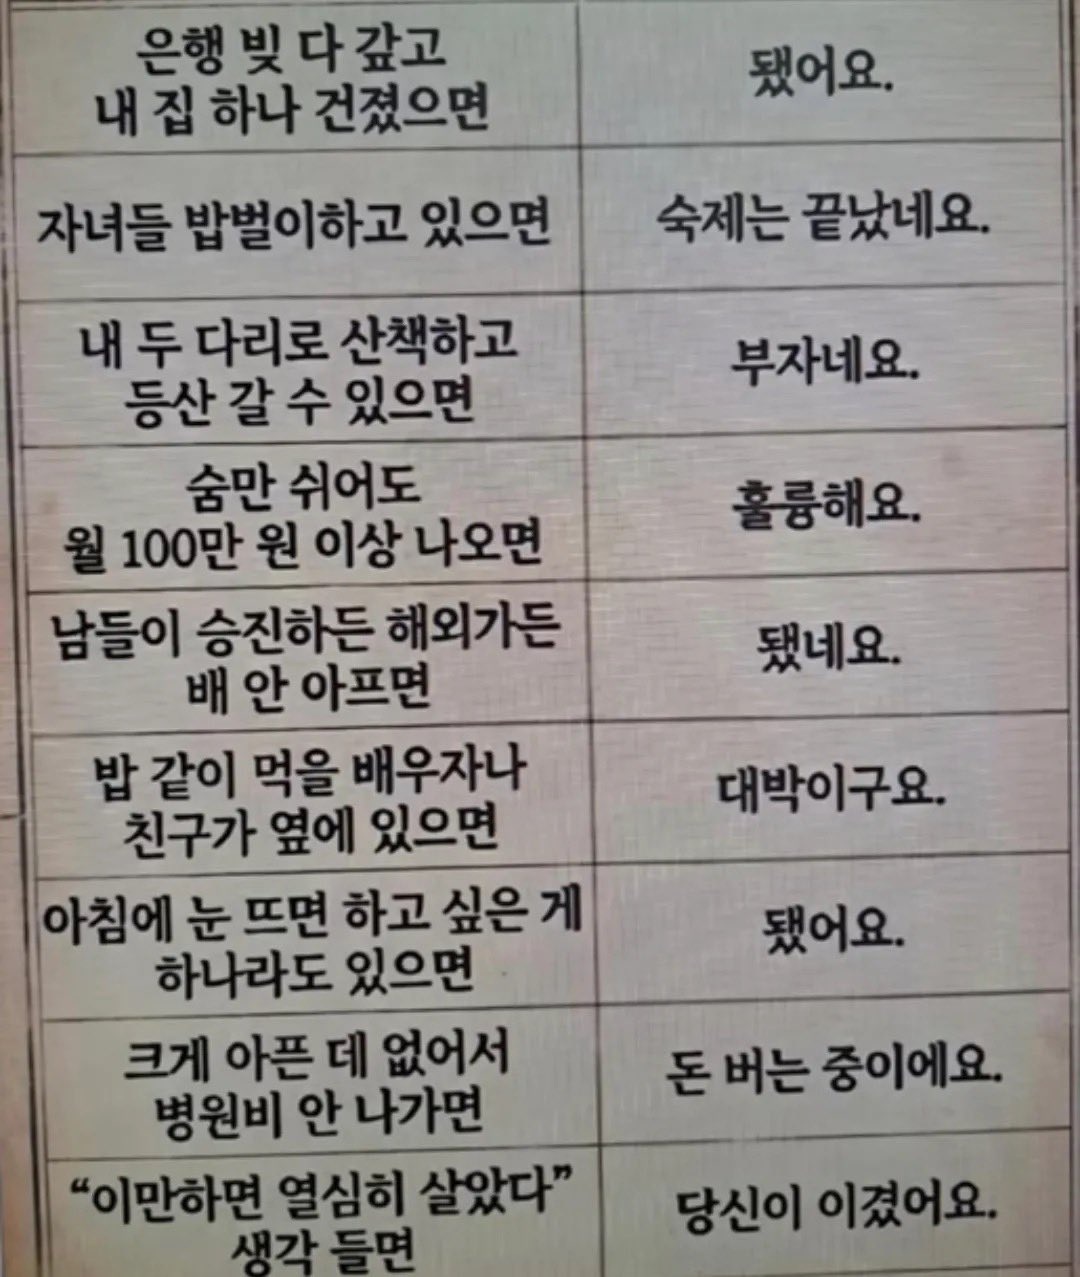 은행 빚 다 갚고
내 집 하나 건졌으면
됐어요.
자녀들 밥벌이하고 있으면
숙제는 끝났네요.
내 두 다리로 산책하고
등산 갈 수 있으면
부자네요.
숨만 쉬어도
월 100만 원 이상 나오면
훌륭해요.
남들이 승진하든 해외가든
배 안 아프면
됐네요.
밥 같이 먹을 배우자나
친구가 옆에 있으면
대박이구요.
아침에 눈 뜨면 하고 싶은 게
하나라도 있으면
됐어요.
크게 아픈 데 없어서
병원비 안 나가면
돈 버는 중이에요.
“이만하면 열심히 살았다”
생각 들면
당신이 이겼어요.